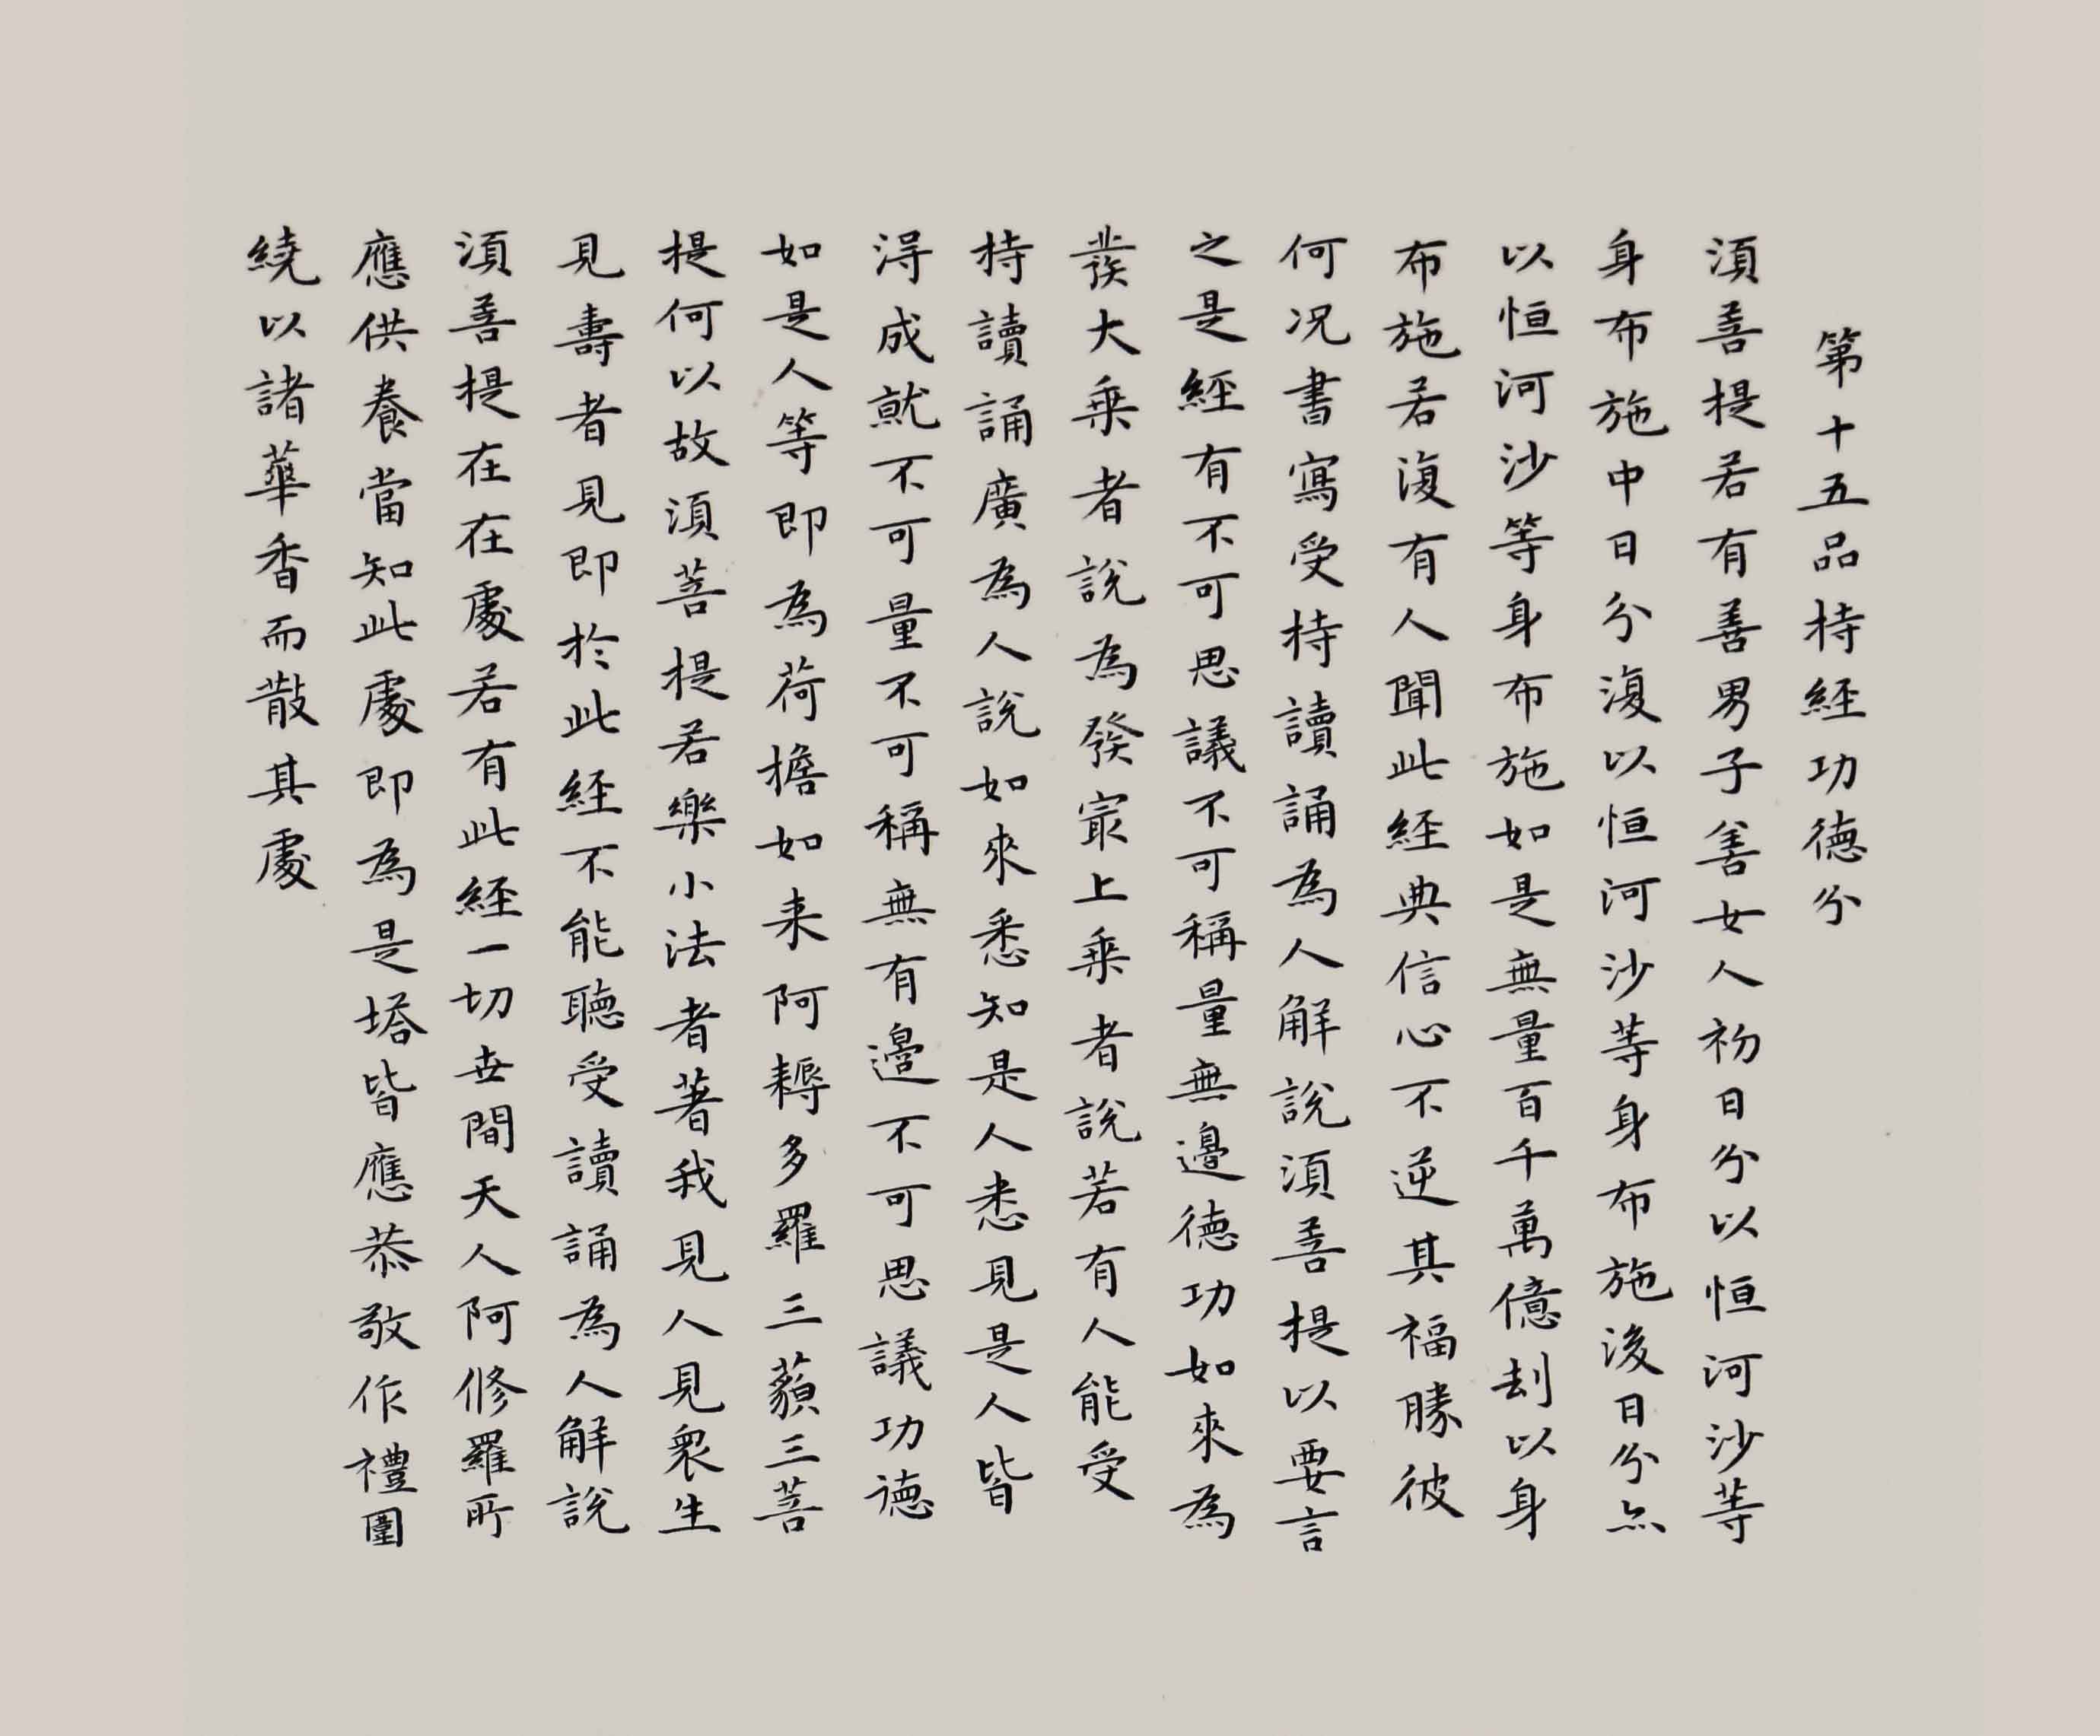 第十五品持經功德分
須菩提若有善男子善女人初日分以恒河沙等
身布施中日分復以恒河沙等身布施後日分亦
以恒河沙等身布施如是無量百千萬億刦以身
布施若復有人聞此經典信心不逆其福勝彼
何况書寫受持讀誦為人解說須菩提以要言
之是經有不可思議不可稱量無邊德功如來為
發大乘者說為發最上乘者說若有人能受
持讀誦廣為人說如來悉知是人悉見是人皆
得成就不可量不可稱無有邊不可思議功德
如是人等即為荷擔如来阿耨多羅三藐三菩
提何以故須菩提若樂小法者著我見人見衆生
見壽者見即於此經不能聽受讀誦為人解說
須菩提在在處若有此經一切世間天人阿修羅所
應供養當知此處即為是塔皆應恭敬作禮圍
繞以諸華香而散其處